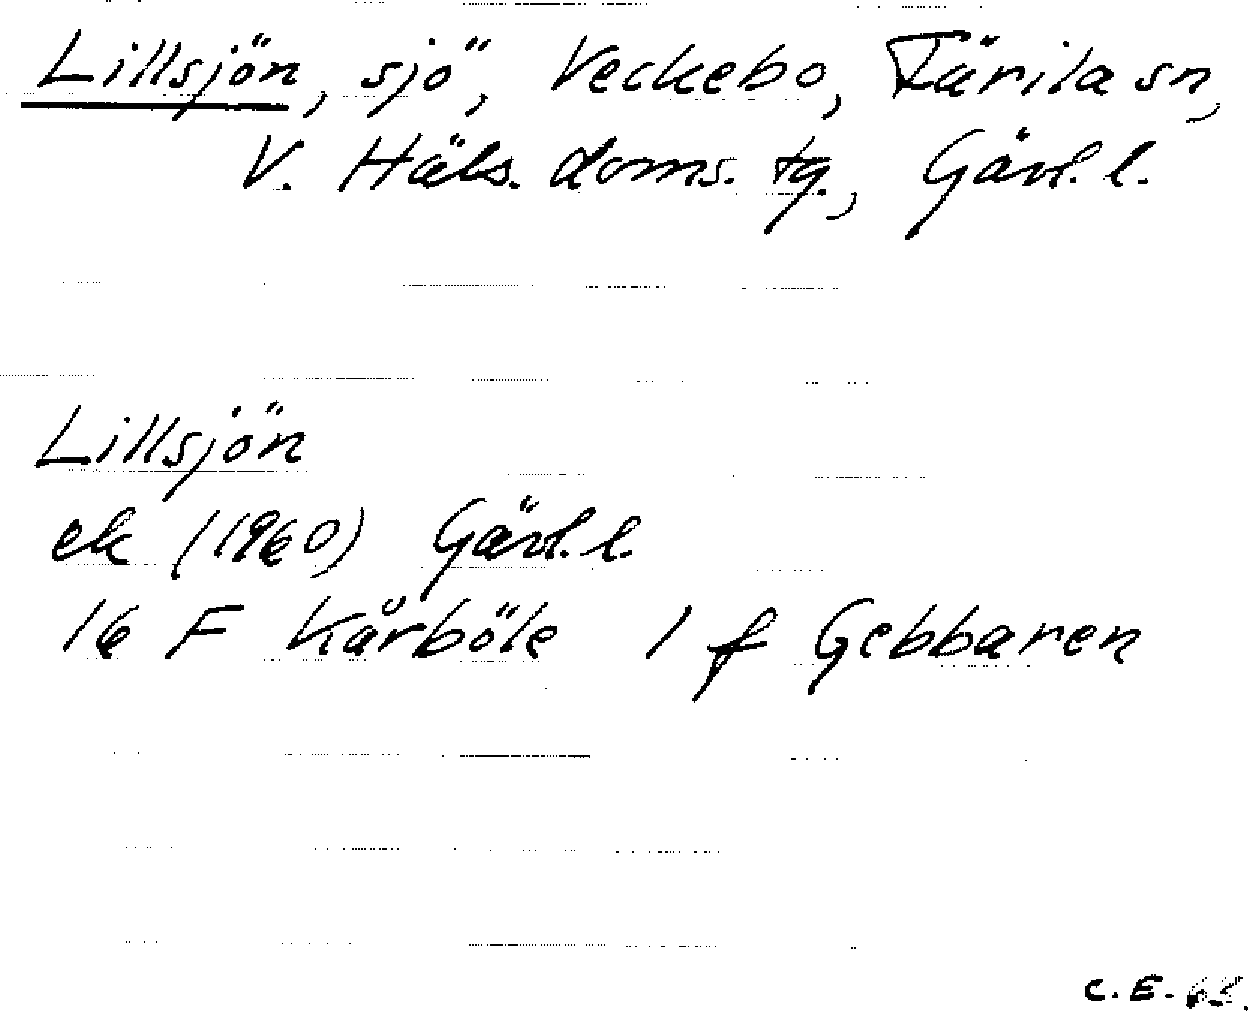 Lillsjön, sjö, Veckebo, Färila sn,
V. Häls. doms. tg., Gävl. l.
Lillsjön
ek (1960) Gävl. l.
16 F Kårböle 1 f Gebbaren
C. E. 65.